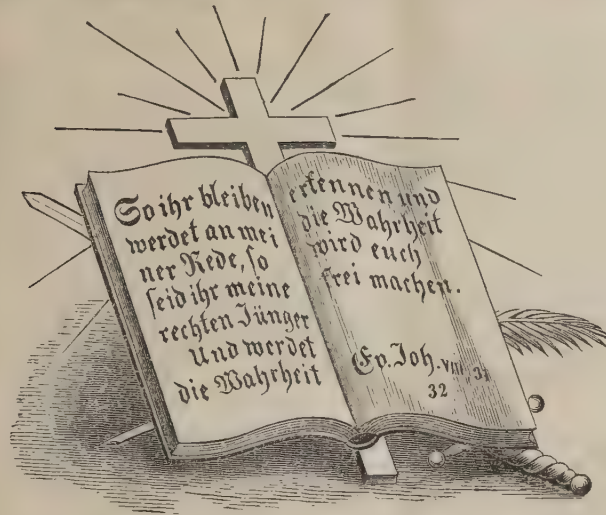 So ihr bleiben
werdet an mei
ner Rede, so
seid ihr meine
rechten Jünger
Und werdet
die Wahrheit
erkennen und
die Wahrheit
wird euch
frei machen.
Ev. Joh. VIII 31
32